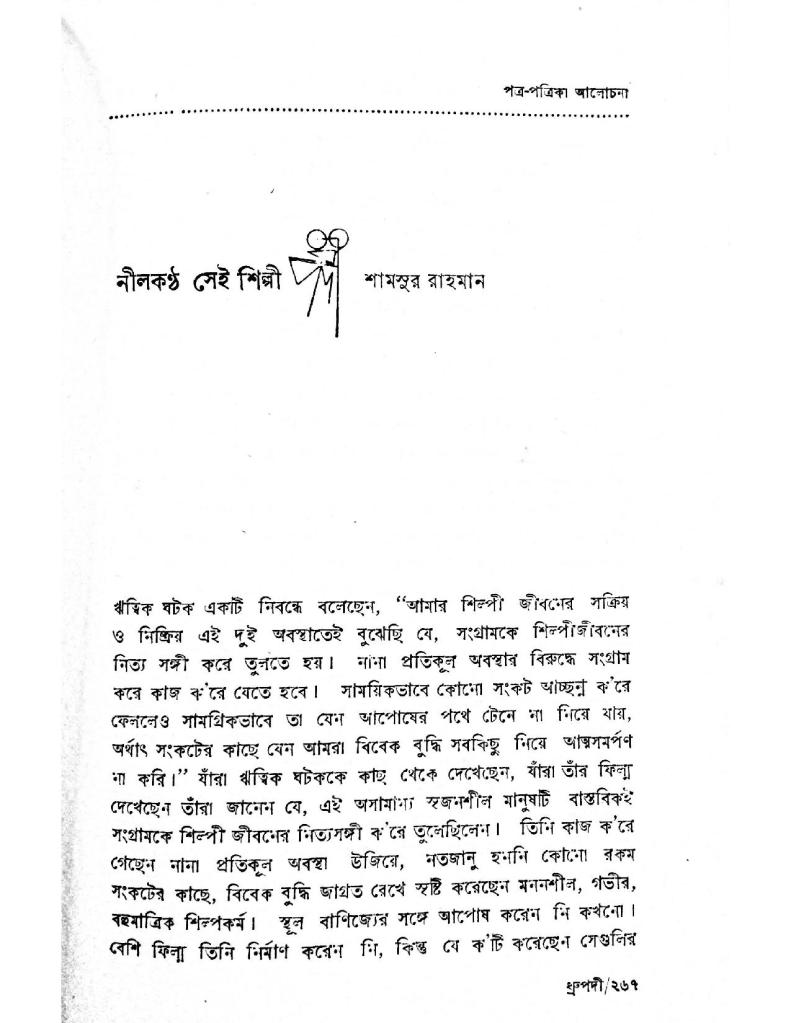 পত্র-পত্রিকা আলোচনা
নীলকণ্ঠ সেই শিল্পী শামসুর রাহমান
ঋত্বিক ঘটক একটি নিবন্ধে বলেছেন, “আমার শিল্পী জীবনের সক্রিয়
ও নিষ্ক্রিয় এই দুই অবস্থাতেই বুঝেছি যে, সংগ্রামকে শিল্পীজীবনের
নিত্য সঙ্গী করে তুলতে হয়। নানা প্রতিকূল অবস্থার বিরুদ্ধে সংগ্রাম
করে কাজ ক'রে যেতে হবে। সাময়িকভাবে কোনো সংকট আচ্ছন্ন ক'রে
ফেললেও সামগ্রিকভাবে তা যেন আপোষের পথে টেনে না নিয়ে যায়,
অর্থাৎ সংকটের কাছে যেন আমরা বিবেক বুদ্ধি সবকিছু নিয়ে আত্মসমর্পণ
না করি।” যাঁরা ঋত্বিক ঘটককে কাছ থেকে দেখেছেন, যাঁরা তাঁর ফিল্ম
দেখেছেন তাঁরা জানেন যে, এই অসামান্য সৃজনশীল মানুষটি বাস্তবিকই
সংগ্রামকে শিল্পী জীবনের নিত্যসঙ্গী ক'রে তুলেছিলেন। তিনি কাজ ক'রে
গেছেন নানা প্রতিকূল অবস্থা উজিয়ে, নতজানু হননি কোনো রকম
সংকটের কাছে, বিবেক বুদ্ধি জাগ্রত রেখে সৃষ্টি করেছেন মননশীল, গভীর,
বহুমাত্রিক শিল্পকর্ম। স্থূল বাণিজ্যের সঙ্গে আপোষ করেন নি কখনো।
বেশি ফিল্ম তিনি নির্মাণ করেন নি, কিন্তু যে ক'টি করেছেন সেগুলির
ধ্রুপদী/২৬৭